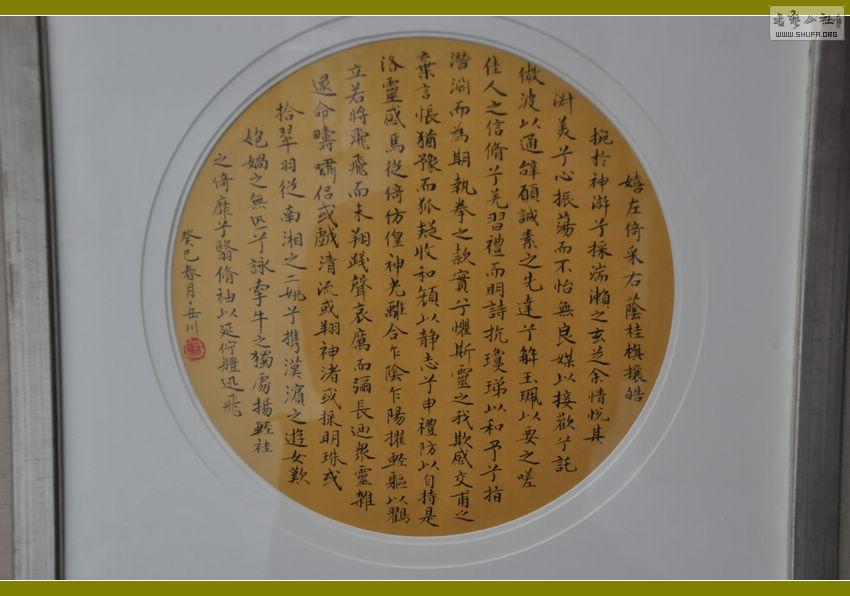 嬉左倚采右蔭桂旗攘皓
捥於神滸兮採湍瀨之玄芝余情悅其
淑美兮心振蕩而不怡無良媒以接歡兮託
微波以通辭願誠素之先達兮解玉珮以要之嗟
佳人之信脩兮羌習禮而明詩抗瓊珶以和予兮指
潛淵而為期執拳之款實兮懼斯靈之我欺感交甫之
棄言悵猶豫而狐疑收和顏以靜志兮申禮防以自持是
洛靈感焉從倚仿偟神光離合乍陰乍陽擢輕軀以鸖
立若將飛飛而未翔踐聲哀厲而彌長迺衆靈雜
遝命疇嘯侣或戲清流或翔神渚或採明珠或
拾翠羽從南湘之二姚兮攜漢濱之遊女歎
媿媧之無匹兮詠牽牛之獨處揚輕袿
之倚靡兮翳脩袖以延佇軆迅飛
癸巳春月岳川
書法公社
WWW.SHUFA.ORG